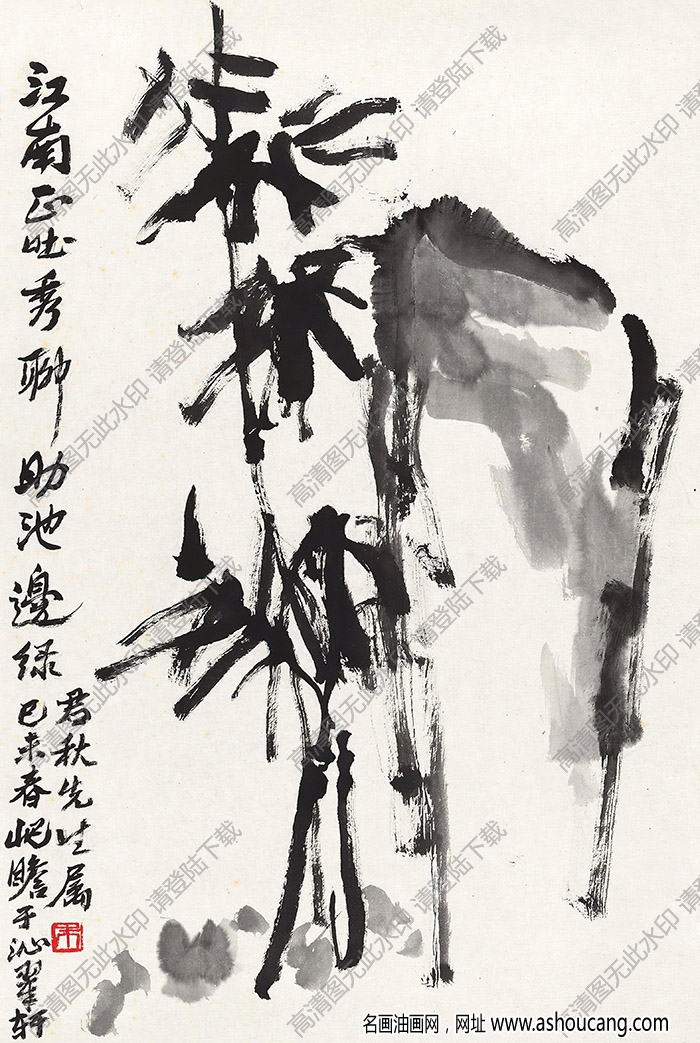 江南正吐秀聊助池邊绿
君秋先生属
己未春屺瞻于沁翠轩
朱
高清图无此水印 请登陆下载
名画油画网，网址 www.ashoucang.com